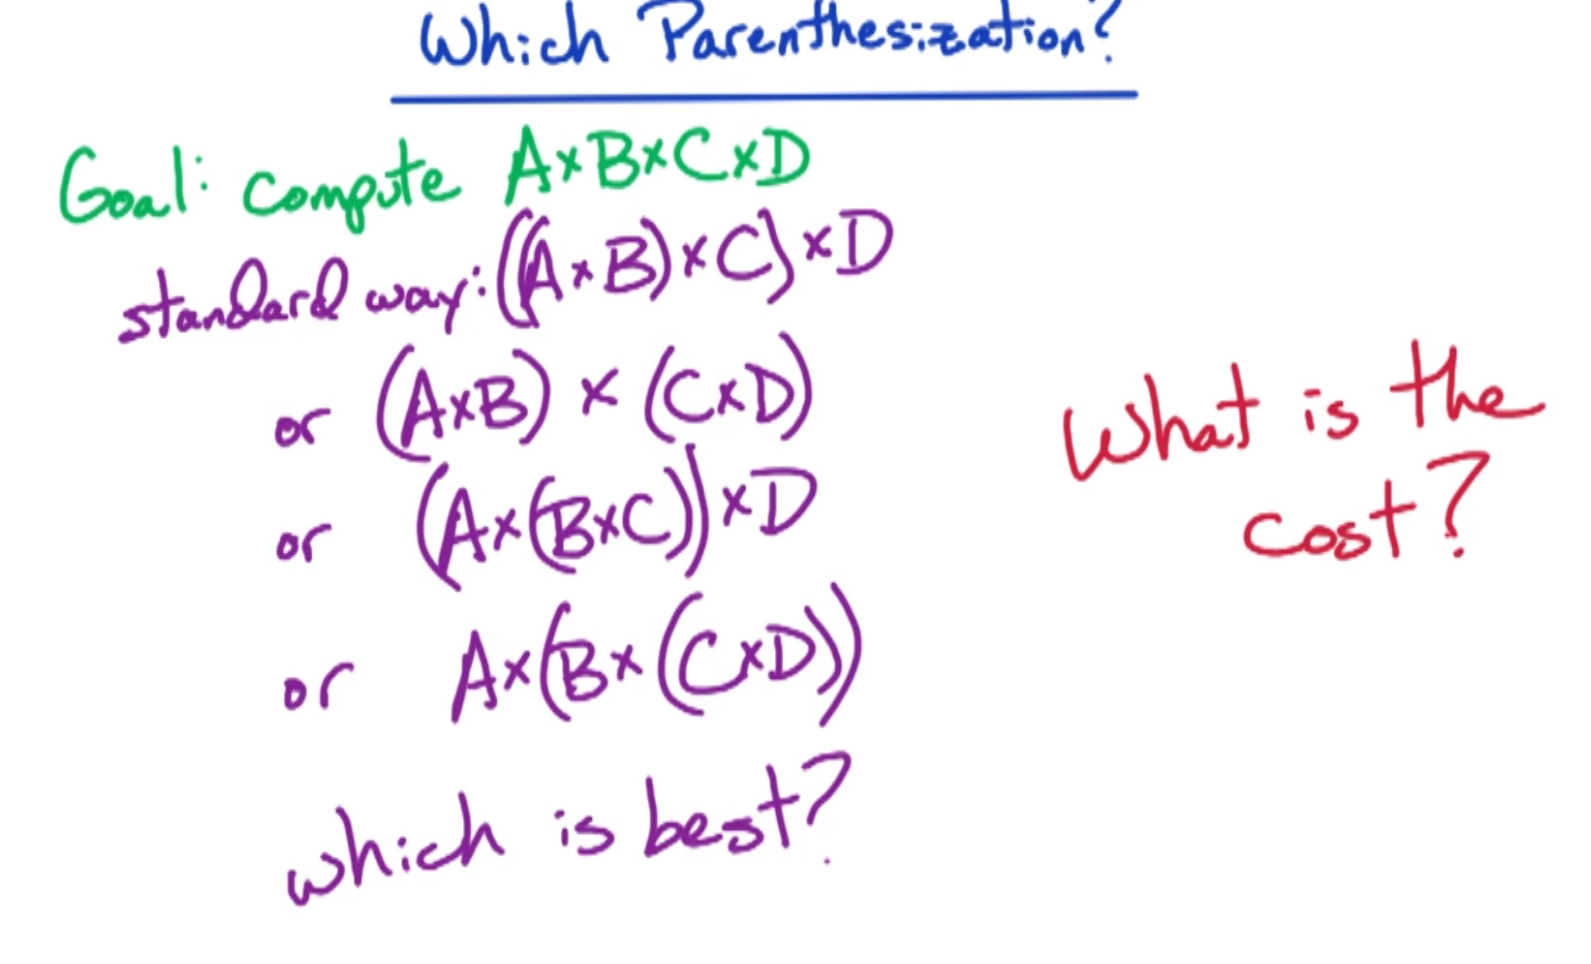 Which Parenthesization?
Goal: compute A×B×C×D
standard way: ((A×B)×C)×D
or (A×B) × (C×D)
or (A×(B×C))×D
or A×(B×(C×D))
What is the
cost?
which is best?